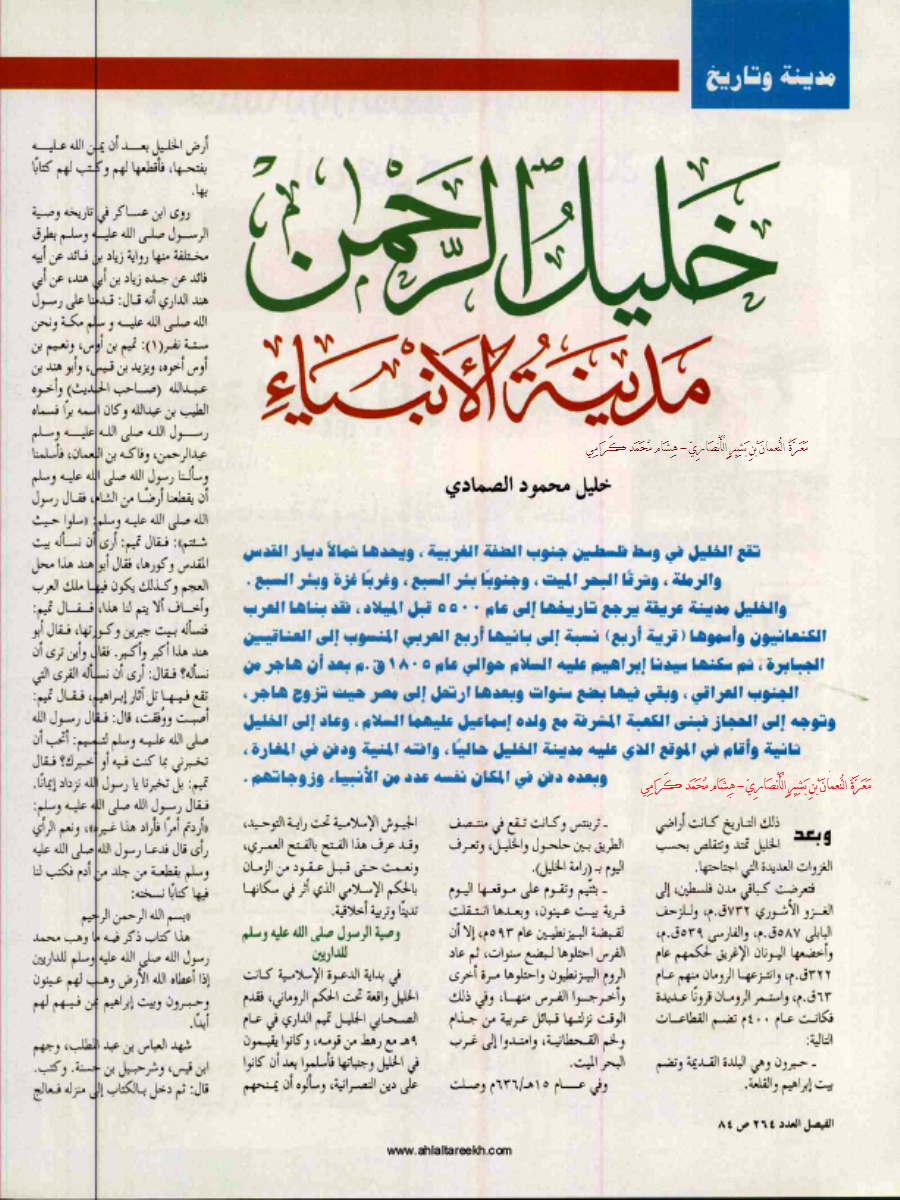 مدينة وتاريخ
خليل الرحمن
مدينة الأنبياء
معرة النعمان بن بشير الأنصاري - هشام محمد كرامي
خليل محمود الصمادي
تقع الخليل في وسط فلسطين جنوب الضفة الغربية ، ويحدها شمالاً ديار القدس
والرملة ، وشرقًا البحر الميت ، وجنوبًا بئر السبع ، وغربًا غزة وبئر السبع .
والخليل مدينة عريقة يرجع تاريخها إلى عام ٥٥٠٠ قبل الميلاد ، فقد بناها العرب
الكنعانيون وأسموها (قرية أربع) نسبة إلى بانيها أربع العربي المنسوب إلى العناقيين
الجبابرة، ثم سكنها سيدنا إبراهيم عليه السلام حوالي عام ١٨٠٥ق.م بعد أن هاجر من
الجنوب العراقي ، وبقي فيها بضع سنوات وبعدها ارتحل إلى مصر حيث تزوج هاجر ،
وتوجه إلى الحجاز فبنى الكعبة المشرفة مع ولده إسماعيل عليهما السلام ، وعاد إلى الخليل
ثانية وأقام في الموقع الذي عليه مدينة الخليل حاليًا ، وافته المنية ودفن في المغارة ،
وبعده دفن في المكان نفسه عدد من الأنبياء وزوجاتهم .
معرة النعمان بن بشير الأنصاري - هشام محمد كرامي
وبعد ذلك التاريخ كانت أراضي
الخليل تمتد وتتقلص بحسب
الغزوات العديدة التي اجتاحتها.
فتعرضت كباقي مدن فلسطين، إلى
الغزو الأشوري ٧٣٢ق.م، وللزحف
البابلي ٥٨٧ق.م، والفارسي ٥٣٩ق.م،
وأخضعها اليونان الإغريق لحكمهم عام
٣٢٢ق.م، وانتزعها الرومان منهم عام
٦٣ق.م، واستمر الرومان قرونًا عديدة
فكانت عام ٤٠٠م تضم القطاعات
التالية:
ـ حبرون وهي البلدة القديمة وتضم
بيت إبراهيم والقلعة.
ـ تربنتس وكانت تقع في منتصف
الطريق بين حلحول والخليل، وتعرف
اليوم بـ (رامة الخليل).
ـ بثّيم وتقوم على موقعها اليوم
قرية بيت عينون، وبعدها انتقلت
لقبضة البيزنطيين عام ٥٩٣م، إلا أن
الفرس احتلوها لبضع سنوات، ثم عاد
الروم البيزنطيون واحتلوها مرة أخرى
وأخرجوا الفرس منها، وفي ذلك
الوقت نزلتها قبائل عربية من جذام
ولخم القحطانية، وامتدوا إلى غرب
البحر الميت.
وفي عام ١٥هـ/٦٣٦م وصلت
الجيوش الإسلامية تحت راية التوحيد،
وقد عرف هذا الفتح بالفتح العمري،
ونعمت حتى قبل عقود من الزمان
بالحكم الإسلامي الذي أثر في سكانها
تدينًا وتربية أخلاقية.
وصية الرسول صلى الله عليه وسلم
للداريين
في بداية الدعوة الإسلامية كانت
الخليل واقعة تحت الحكم الروماني، فقدم
الصحابي الجليل تميم الداري في عام
٩هـ مع رهط من قومه، وكانوا يقيمون
في الخليل وجنباتها فأسلموا بعد أن كانوا
على دين النصرانية، وسألوه أن يمنحهم
أرض الخليل بعد أن يمن الله عليه
بفتحها، فأقطعها لهم وكتب لهم كتابًا
بها.
روى ابن عساكر في تاريخه وصية
الرسول صلى الله عليه وسلم بطرق
مختلفة منها رواية زياد بن فائد عن أبيه
فائد عن جده زياد بن أبي هند، عن أبي
هند الداري أنه قال: قدمنا على رسول
الله صلى الله عليه و سلم مكة ونحن
ستة نفر(١): تميم بن أوس، ونعيم بن
أوس أخوه، ويزيد بن قيس، وأبو هند بن
عبدالله (صاحب الحديث) وأخوه
الطيب بن عبدالله وكان اسمه برًا فسماه
رسول الله صلى الله عليه وسلم
عبدالرحمن، وفاكه بن النعمان، فأسلمنا
وسألنا رسول الله صلى الله عليه وسلم
أن يقطعنا أرضًا من الشام، فقال رسول
الله صلى الله عليه وسلم: «سلوا حيث
شئتم»: فقال تميم: أرى أن نسأله بيت
المقدس وكورها، فقال أبو هند هذا محل
العجم وكذلك يكون فيها ملك العرب
وأخاف ألا يتم لنا هذا، فقال تميم:
فنسأله بيت جبرين وكورتها، فقال أبو
هند هذا أكبر وأكبر. فقال وأين ترى أن
نسأله؟ فقال: أرى أن نسأله القرى التي
تقع فيها تل آثار إبراهيم، فقال تميم:
أصبت ووُفقت، قال: فقال رسول الله
صلى الله عليه وسلم لتميم: أتحب أن
تخبرني بما كنت فيه أو أخبرك؟ فقال
تميم: بل تخبرنا يا رسول الله نزداد إيمانًا.
فقال رسول الله صلى الله عليه وسلم:
«أردتم أمرًا فأراد هذا غيره»، ونعم الرأي
رأى قال فدعا رسول الله صلى الله عليه
وسلم بقطعة من جلد من أدم فكتب لنا
فيها كتابًا نسخته:
«بسم الله الرحمن الرحيم
هذا كتاب ذكر فيه ما وهب محمد
رسول الله صلى الله عليه وسلم للداريين
إذا أعطاه الله الأرض وهب لهم عينون
وحبرون وبيت إبراهيم بمن فيهم لهم
أبدًا.
شهد العباس بن عبد المطلب، وجهم
ابن قيس، وشرحبيل بن حسنة. وكتب.
قال: ثم دخل بالكتاب إلى منزله فعالج
الفيصل العدد ٢٦٤ ص ٨٤
www.ahlaltareekh.com